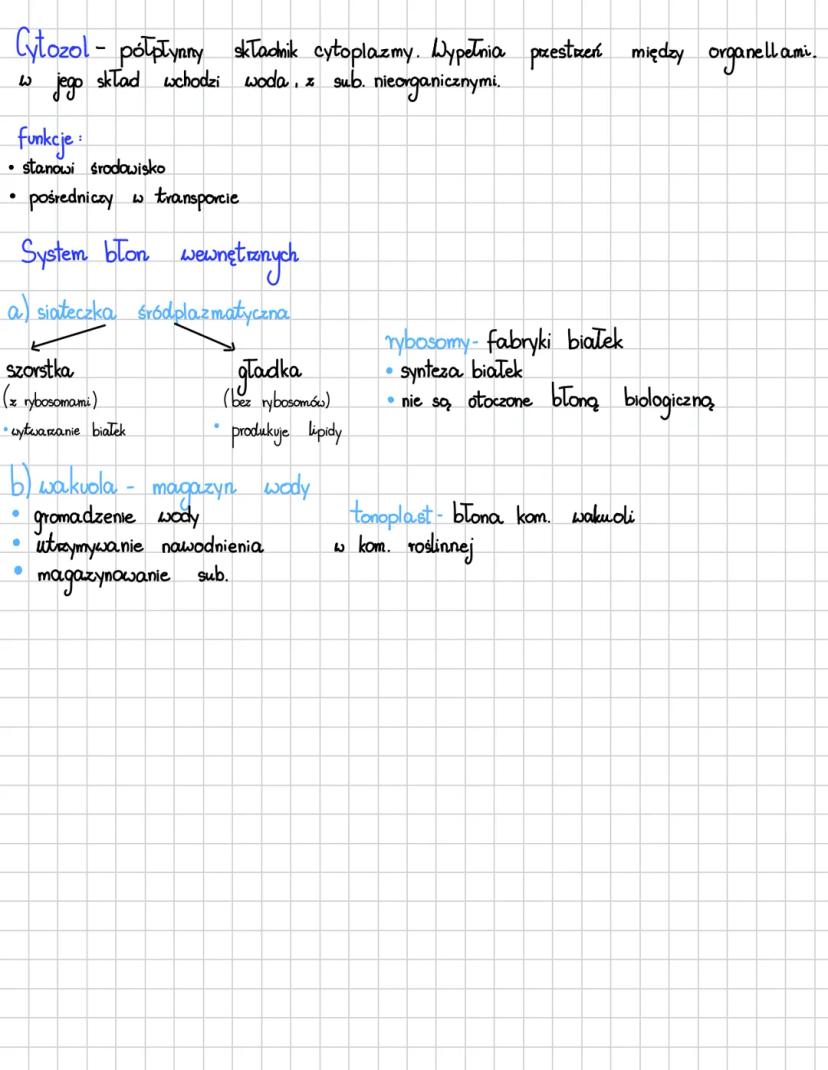 Cytozol - półpłynny składnik cytoplazmy. Wypełnia przestrzeń między organellami.
w jego skład wchodzi woda, z sub. nieorganicznymi.
funkcje:
• stanowi środowisko
• pośredniczy w transporcie
System błon wewnętrznych
a) siateczka śródplazmatyczna
szorstka
(z rybosomami)
• wytwarzanie białek
gładka
(bez rybosomów)
• produkuje lipidy
rybosomy - fabryki białek
• synteza białek
• nie są otoczone błoną biologiczną
b) wakuola - magazyn wody
• gromadzenie wody
• utrzymywanie nawodnienia
• magazynowanie sub.
tonoplast - błona kom. wakuoli
w kom. roślinnej